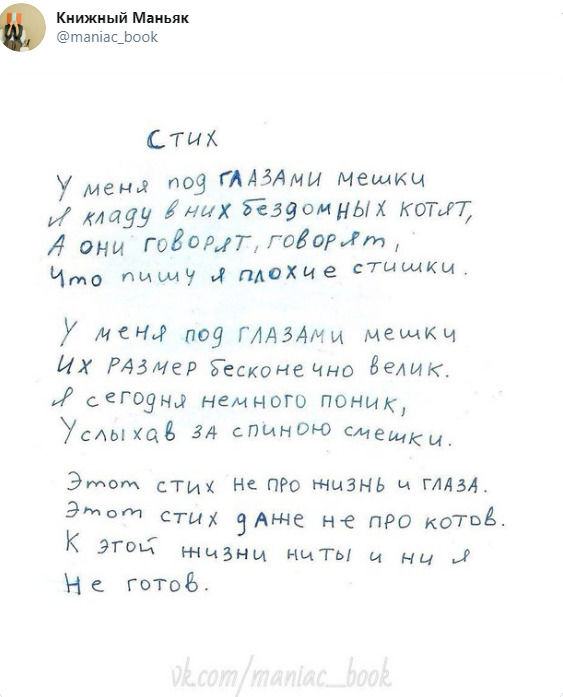 Книжный Маньяк
@maniac_book
СТИХ
У меня под ГЛАЗАМИ мешки
Я кладу в них бездомных котят,
А они говорят, говорят,
Что пишу я плохие стишки.
У меня под ГЛАЗАМИ мешки
Их РАЗМер бесконечно велик.
Я сегодня немного поник,
Услыхав ЗА спиною смешки.
Этот стих не про жизнь и ГЛАЗА.
Этот стих дАже не про котов.
К этой жизни ни ты и ни я
Не готов.
vk.com/maniac_book